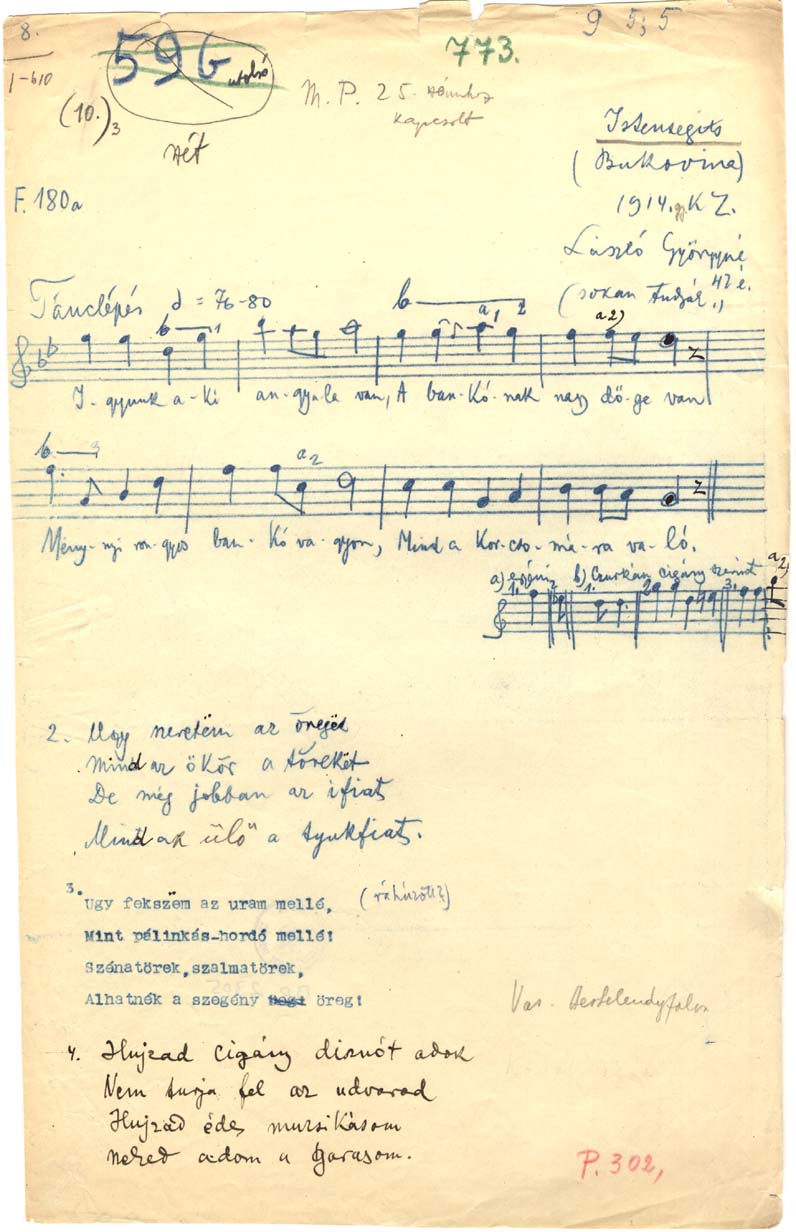 8.
1-610
596 utolsó
773.
9 5; 5
(10.)3
M. P. 25.
kapcsolt
Istensegíts
(Bukovina)
1914. KZ.
F. 180a
László Györgyné
47 é.
(sokan tudják)
Tánclépés = 76-80
b a1 2
b 1 a2)
I-gyunk a-ki an-gya-la van, A ban-kó-nak nagy dő-ge van
b 3 a2
Mény-nyi ron-gyos ban-kó va-gyon, Mind a kor-cso-má-ra va-ló.
a) b) Czurkán cigány szerint a2)
1. 2 1. 2 3.
2. Ugy szeretëm az öregët
Mind az ökör a törekët
De még jobban az ifiat
Mind ak ülő a tyukfiat.
3. Ugy fekszëm az uram mellé, (ráhúzott?)
Mint pálinkás-hordó mellé!
Szénatörek, szalmatörek,
Alhatnék a szegény öreg!
Vas.
4. Hujzad cigány disznót adok
Nem turja fel az udvarod
Hujzad édes muzsikásom
neked adom a garasom.
P. 302,